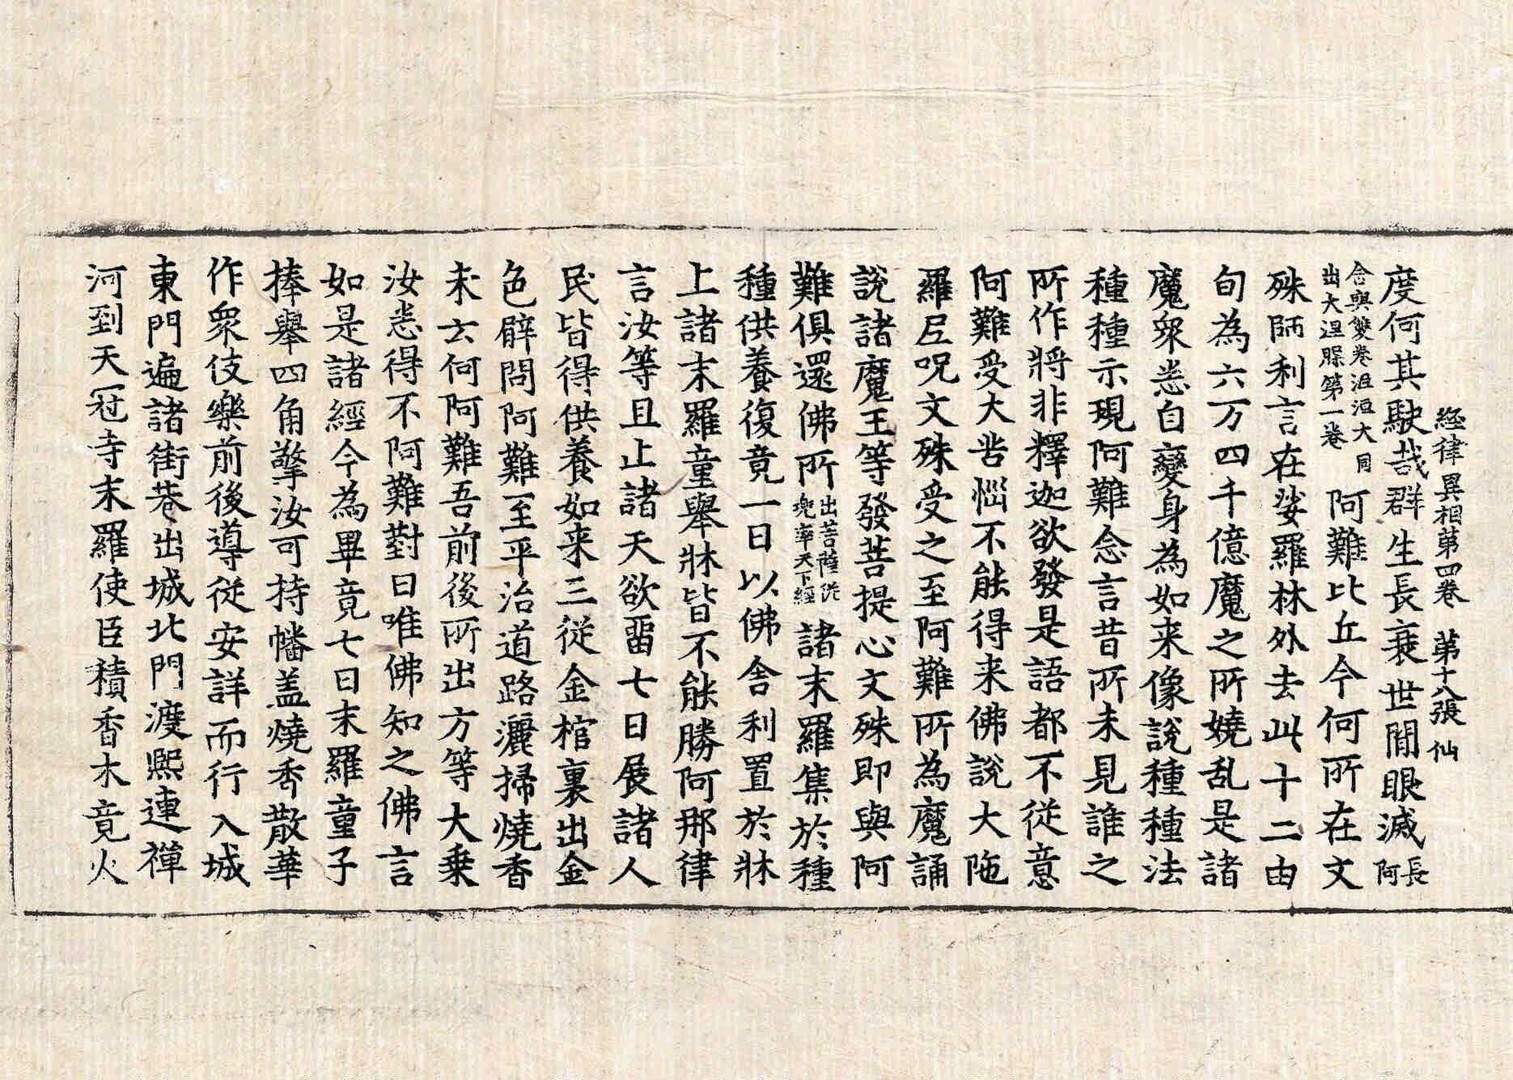 経律異相苐四卷 苐十八張 仙
度何其駛㢤群生長衰世間眼滅長阿
含與雙卷泥洹大同出大涅槃第一卷 阿難比丘今何所在文
殊師利言在娑羅林外去此十二由
旬為六万四千億魔之所嬈乱是諸
魔衆悉自變身為如来像說種種法
種種示現阿難念言昔所未見誰之
所作将非釋迦欲發是語都不従意
阿難受大苦惱不能得来佛說大陁
羅尼呪文殊受之至阿難所為魔誦
說諸魔王等發菩提心文殊即與阿
難俱還佛所出菩薩従兠率天下經 諸末羅集於種
種供養復竟一日以佛舍利置於牀
上諸末羅童舉牀皆不能勝阿那律
言汝等且止諸天欲留七日展諸人
民皆得供養如来三従金棺裏出金
色臂問阿難至平治道路灑掃燒香
未去何阿難吾前後所出方等大乗
汝悉得不阿難對曰唯佛知之佛言
如是諸經今為畢竟七日末羅童子
捧舉四角擎汝可持幡盖燒香散華
作衆伎樂前後導従安詳而行入城
東門遍諸街巷出城北門渡熙連禪
河到天冠寺末羅使臣積香木竟火